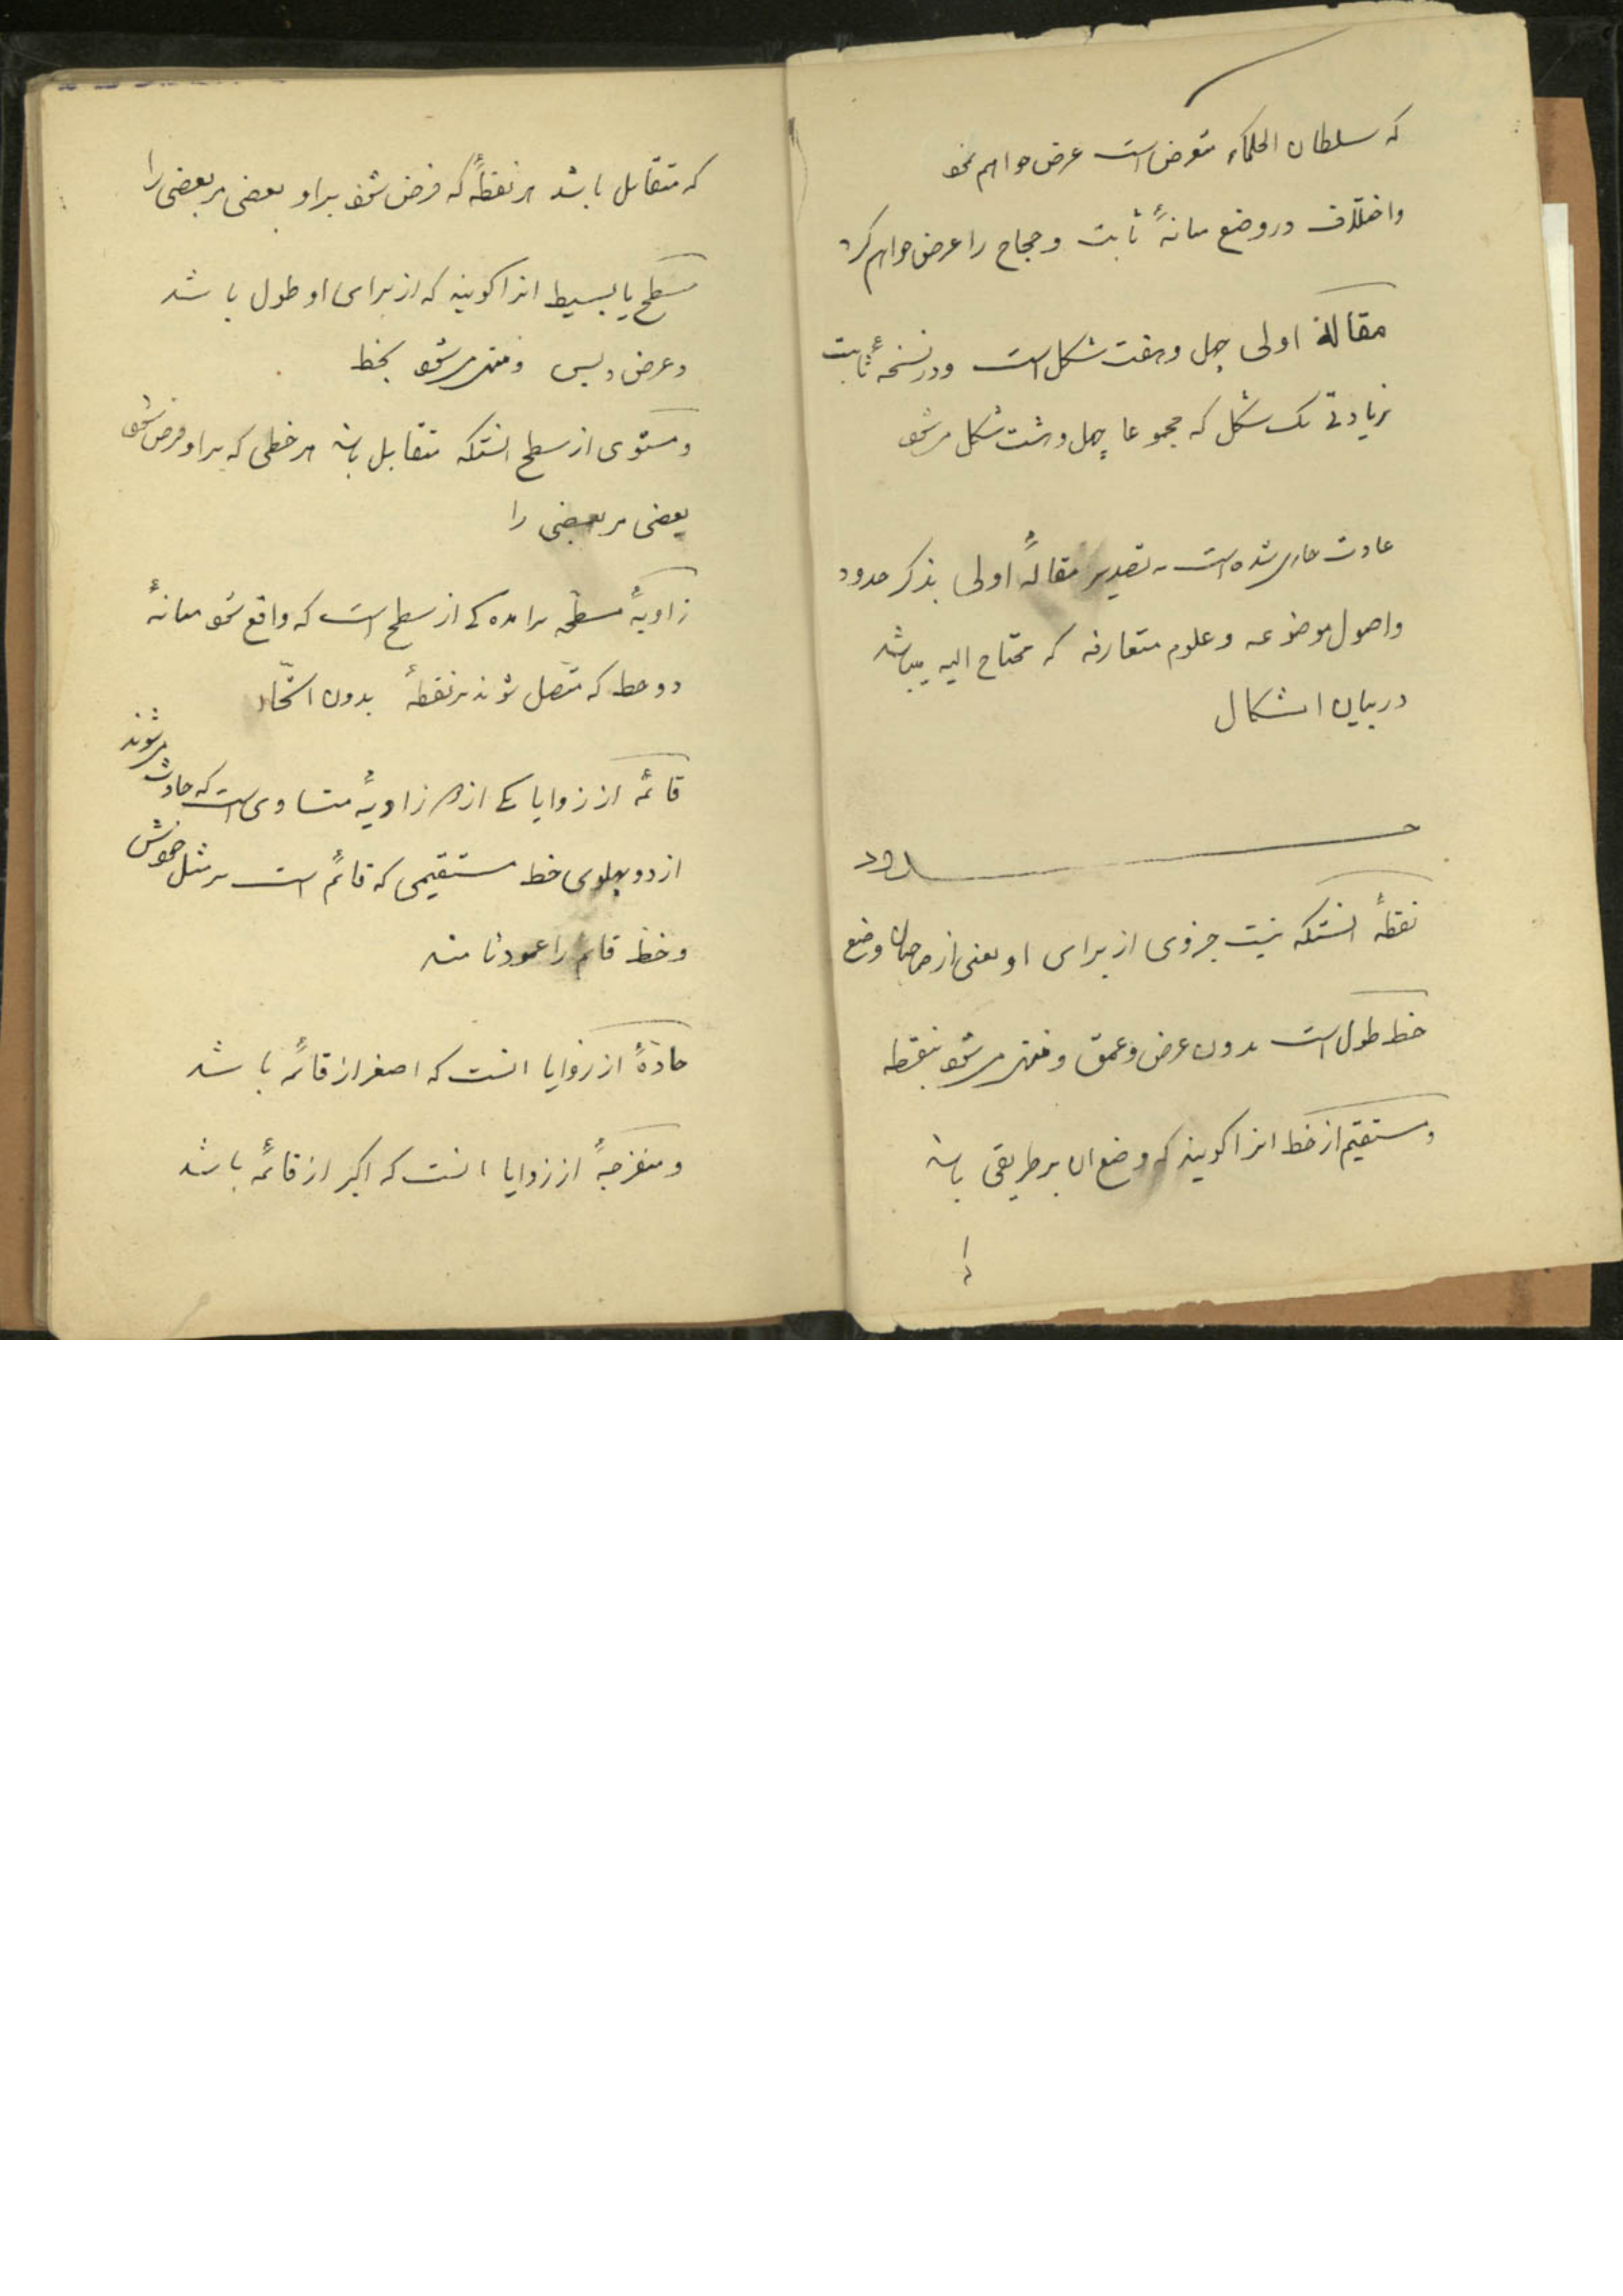 که سلطان الحکماء متعرض است عرض خواهم نمود
واختلاف در وضع میانهٔ ثابت و حجاج را عرض خواهم کرد
مقالهٔ اولی چهل و هفت شکل است و در نسخهٔ ثابت
بزیادتی یک شکل که مجموعا چهل و هشت شکل میشود
عادت جاری شده است به تصدیر مقالهٔ اولی بذکر حدود
واصول موضوعه و علوم متعارفه که محتاج الیه میباشد
در بیان اشکال
حدود
نقطهٔ انستکه نیست جزوی از برای او یعنی از صاحبان وضع
خط طول است بدون عرض و عمق و منتهی میشود بنقطه
و مستقیم از خط انرا کویند که وضع ان بر طریقی باشد
که متقابل باشد هر نقطهٔ که فرض شود بر او بعضی مر بعضی را
سطح یا بسیط انرا کویند که از برای او طول باشد
و عرض و بس و منتهی میشود بخط
و مستوی از سطح انستکه متقابل باشد هر خطی که بر او فرض شود
بعضی مر بعضی را
زاویهٔ مسطحه از سطح است که واقع شود میانهٔ
دو خط که متصل شوند بر نقطهٔ بدون اتحاد
قائمه از زوایا یکی از دو زاویهٔ متساوی است که حادث میشوند
از دو پهلوی خط مستقیمی که قائم است بر مثل خودش
و خط قائم را عمود نامند
حادهٔ از زوایا انست که اصغر از قائمه باشد
و منفرجهٔ از زوایا انست که اکبر از قائمه باشد